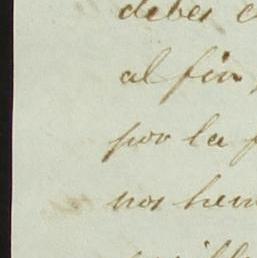 debes
al fin,
por la
nos hem